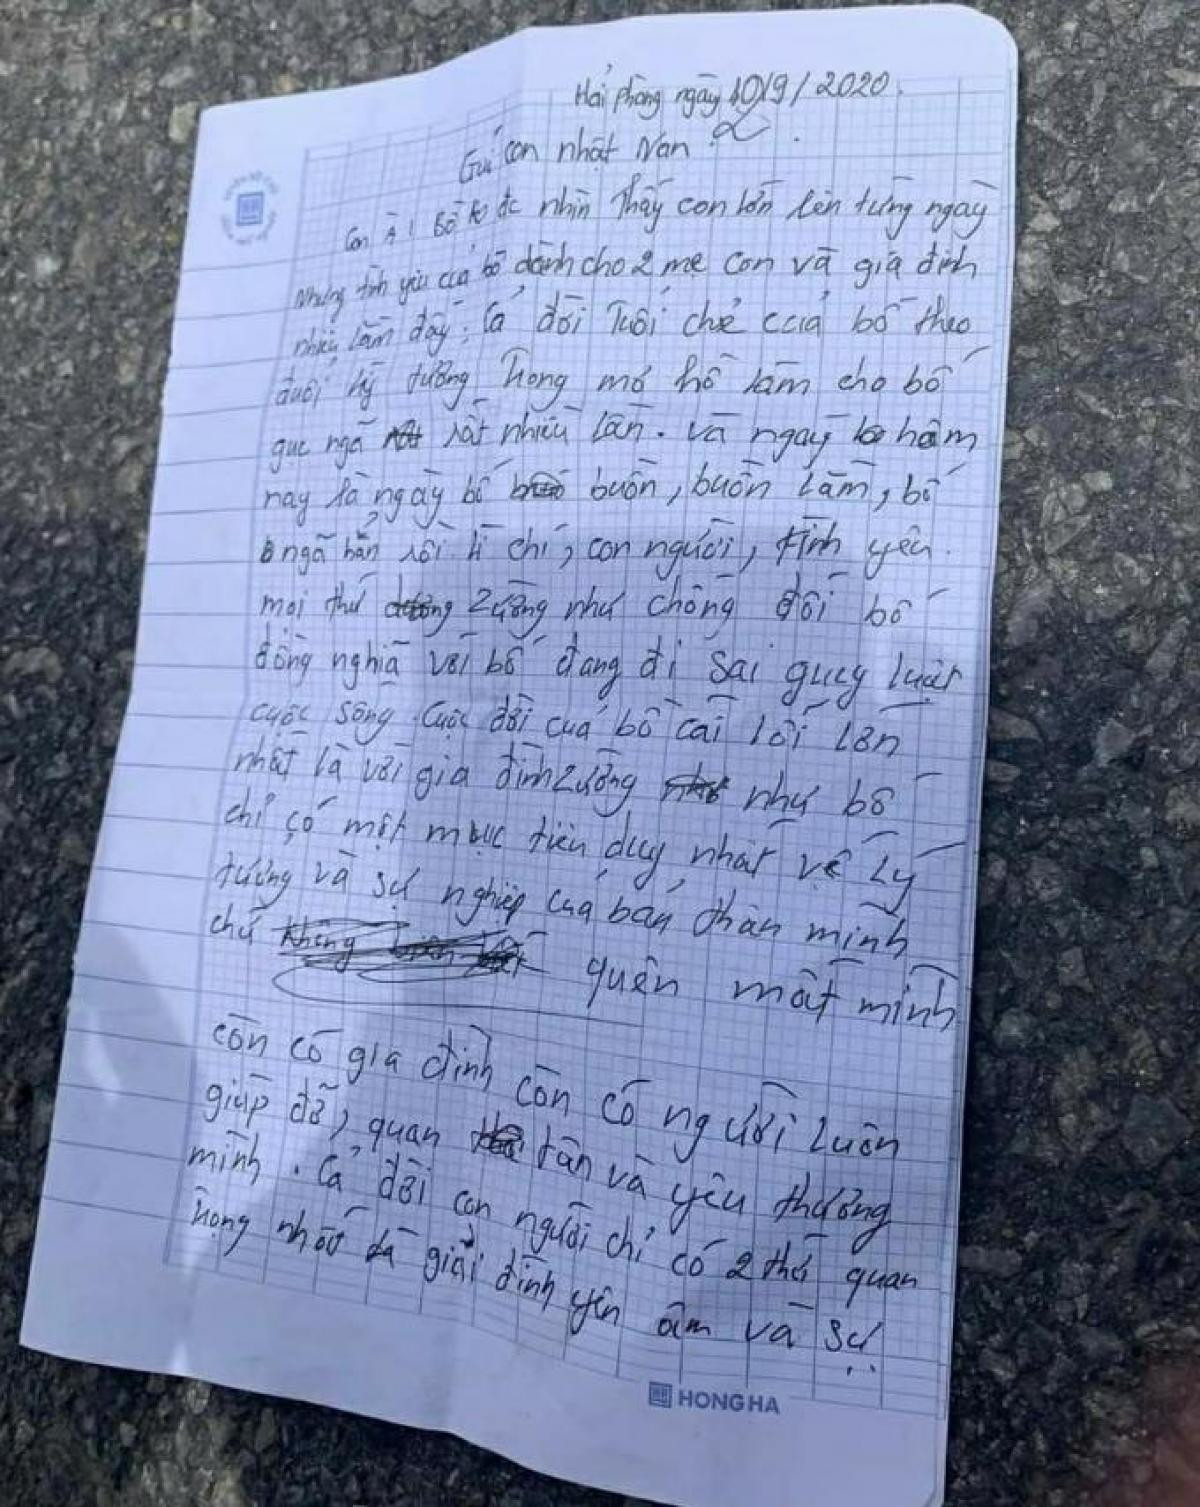 Hải phòng ngày 10/9/2020.
Gửi con nhật Nam
Con À! Bố ko đc nhìn thấy con lớn lên từng ngày
Nhưng tình yêu của bố dành cho 2 mẹ con và gia đình
nhiều lắm đấy. Cả đời Tuổi chẻ của bố theo
đuổi lý tưởng trong mơ hồ làm cho bố
gục ngã rất nhiều lần. và ngay hôm
nay là ngày bố buồn, buồn lắm, bố
ngã hẳn rồi lí chí, con người, tình yêu.
mọi thứ 2ường như chống đối bố
đồng nghĩa với bố đang đi sai quy luật
cuộc sống. Cuộc đời của bố cái lối lớn
nhất là với gia đình 2ường như bố
chỉ có một mục tiêu duy nhất về lý
tưởng và sự nghiệp của bản thân mình
chứ quên mất mình
còn có gia đình còn có người luôn
giúp đỡ, quan tân và yêu thương
mình. Cả đời con người chỉ có 2 thứ quan
trọng nhất là giải đình yên âm và sự
HONG HA